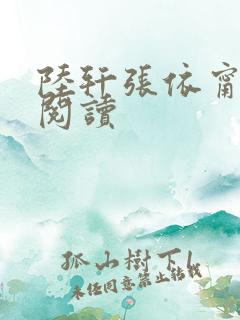 陸軒張依甯
閱讀
孤山樹下
未經同意禁止轉載